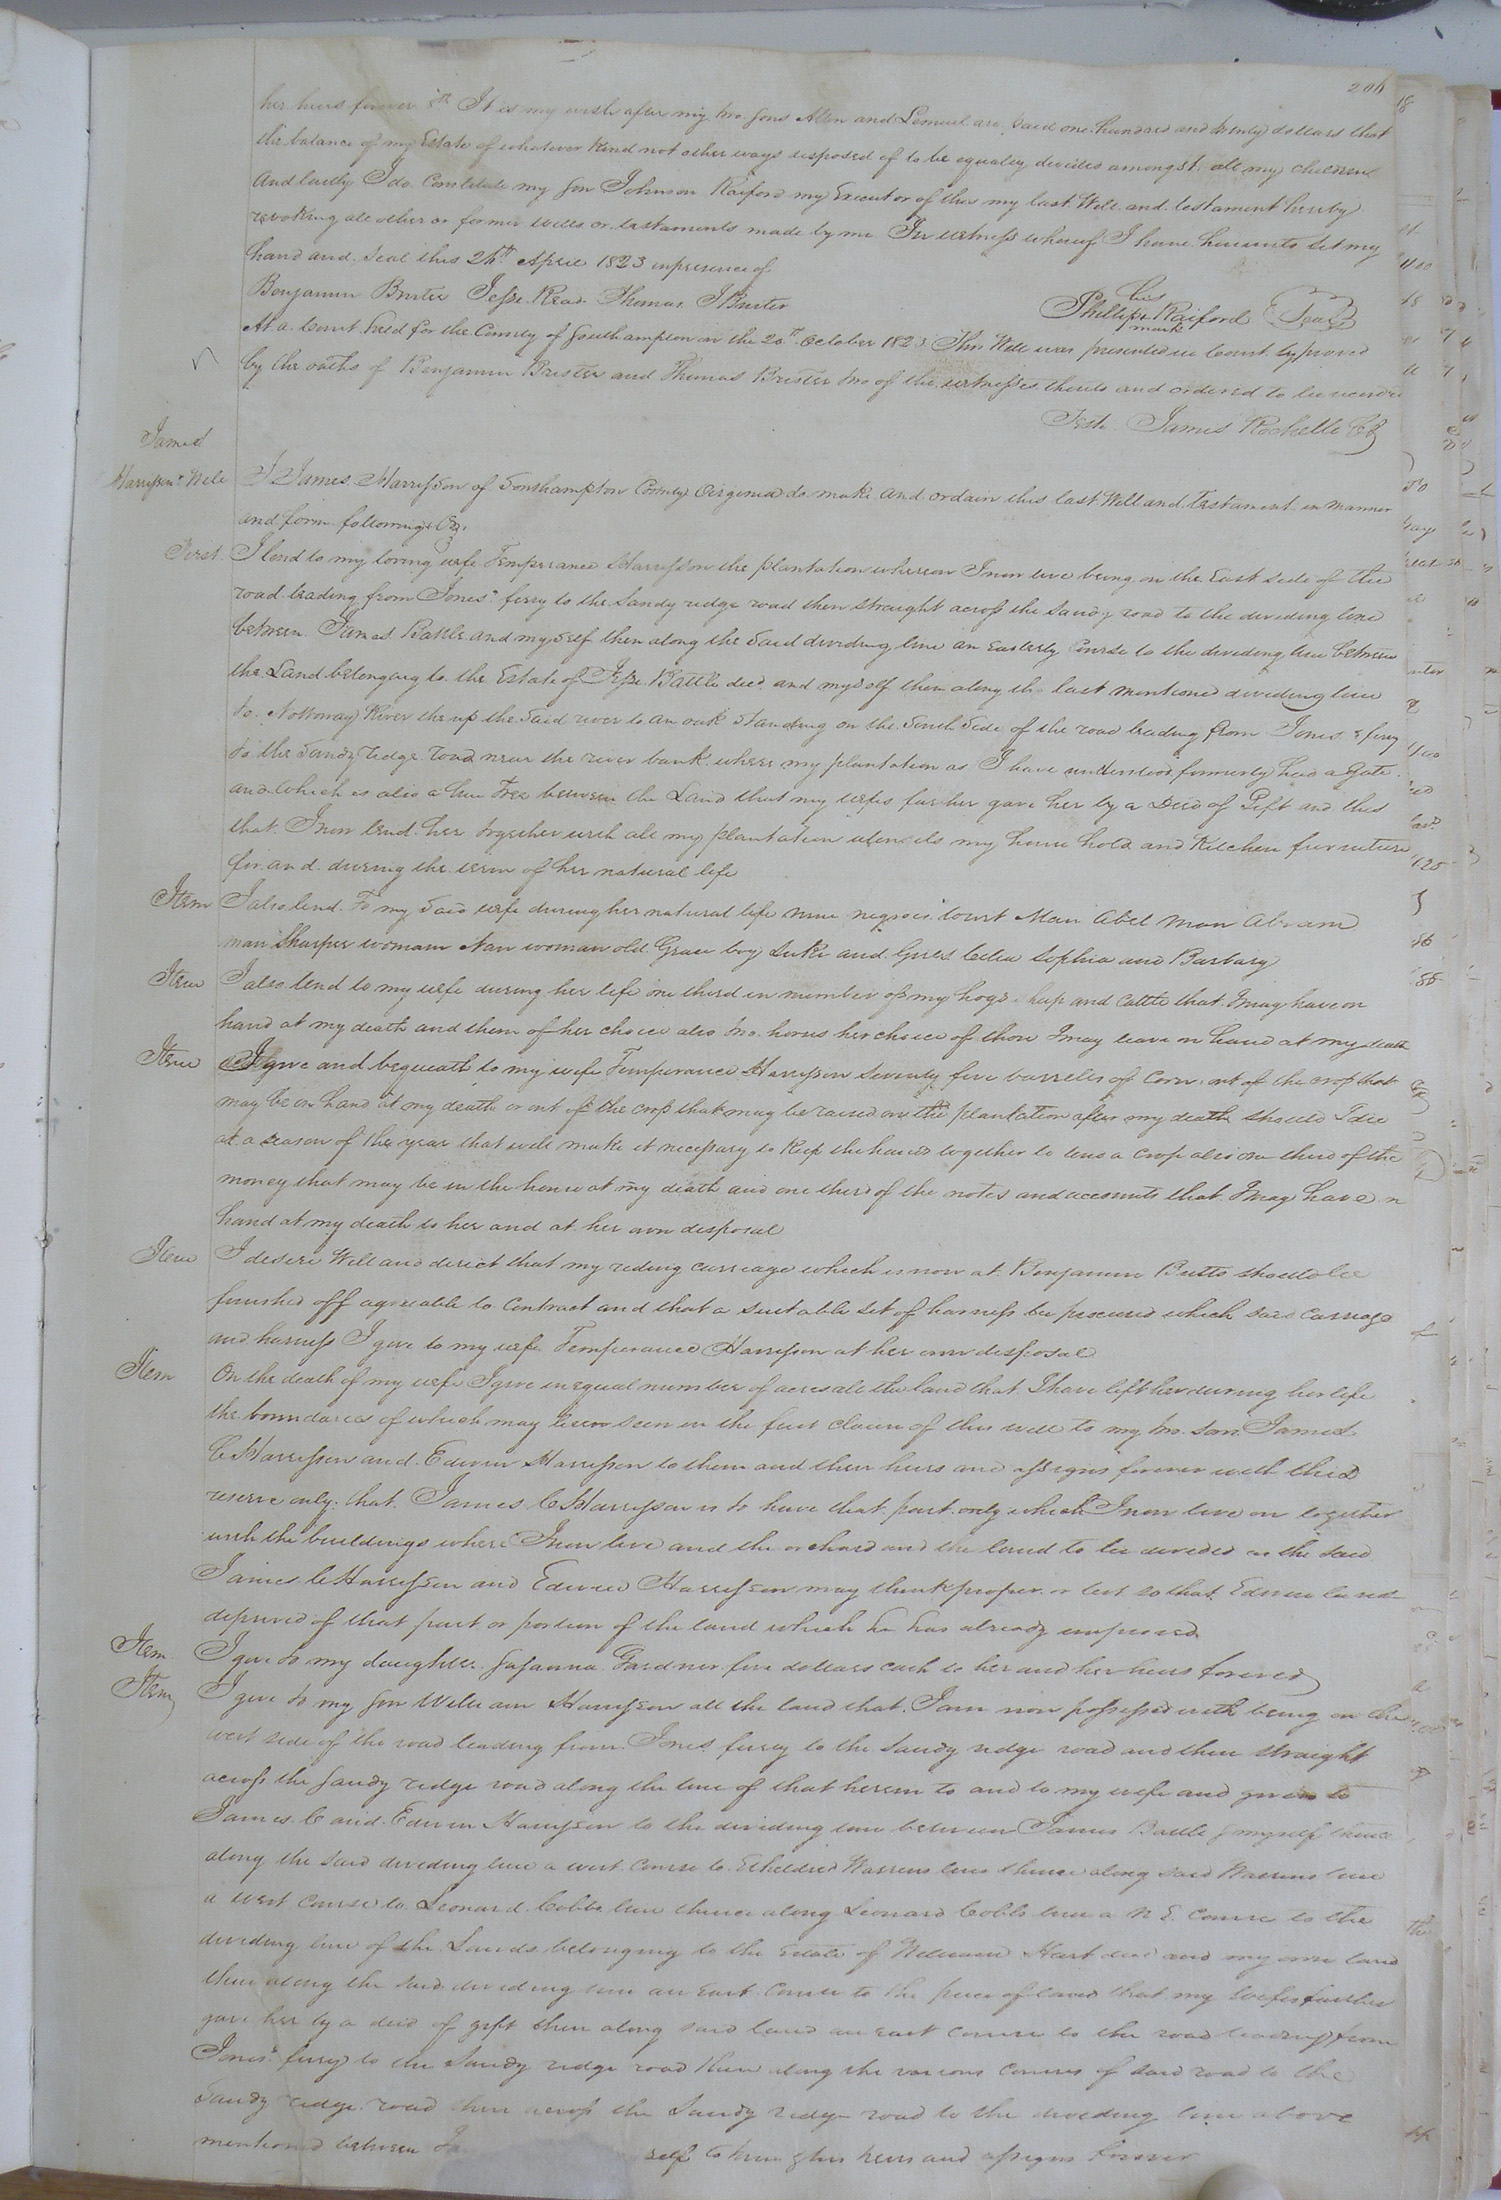 206
her heirs forever 5th It is my wish after my two sons Allen and Lemuel are paid one hundred and twenty dollars that
the balance of my Estate of whatever kind not other ways disposed of to be equally divided amongst all my children
And lastly I do Constitute my son Johnson Raiford my Executor of this my last Will and testament hereby
revoking all other or former wills or testaments made by me In witness whereof I have hereunto set my
hand and seal this 24th April 1823 in presence of
Benjamin Brister Jesse Read Thomas J Brister
his
Phillip Raiford Seal
mark
At a Court held for the County of Southampton on the 20th October 1823 This Will was presented in Court & proved
by the oaths of Benjamin Brister and Thomas Brister two of the witnesses thereto and ordered to be recorded
Teste James Rochelle CC
James
Harrison's Will
I James Harrisson of Southampton County Virginia do make and ordain this last Will and Testament in manner
and form following Viz.
First I lend to my loving wife Temperance Harrisson the plantation whereon I now live being on the East side of the
road leading from Jones's ferry to the Sandy ridge road then straight across the Sandy road to the dividing line
between James Battle and myself then along the said dividing line an Easterly Course to the dividing line between
the Land belonging to the Estate of Jesse Battle decd and myself then along the last mentioned dividing line
to Nottoway River the up the said river to an oak standing on the South side of the road leading from Jones's ferry
to the Sandy ridge road near the river bank where my plantation as I have understood formerly had a Gate
and which is also a line Tree between the Land that my wifes father gave her by a Deed of Gift and this
that I now lend her together with all my plantation utensils my house hold and Kitchen furniture
for and during the term of her natural life
Item I also lend to my said wife during her natural life nine negroes to wit Man Abel man Abram
man Sharper woman Nan woman old Grace boy Luke and Girls Celia Sophia and Barbary
Item I also lend to my wife during her life one third in number of my hogs sheep and Cattle that I may have on
hand at my death and them of her choice also two horses her choice of those I may leave on hand at my death
Item I give and bequeath to my wife Temperance Harrisson seventy five barrells of Corn out of the crop that
may be on hand at my death or out of the crop that may be raised on the plantation after my death should I die
at a season of the year that will make it necessary to keep the hands together to tend a crop also one third of the
money that may be in the house at my death and one third of the notes and accounts that I may have on
hand at my death to her and at her own disposal
Item I desire Will and direct that my riding carriage which is now at Benjamin Butts should be
finished off agreeable to Contract and that a suitable set of harness be procured which said carriage
and harness I give to my wife Temperance Harrisson at her own disposal
Item On the death of my wife I give in equal number of acres all the land that I have left her during her life
the boundaries of which may be seen in the first clause of this will to my two sons James
C Harrisson and Edwin Harrisson to them and their heirs and assigns forever with this
reserve only that James C Harrisson is to have that part only which I now live on together
with the buildings where I now live and the orchard and the land to be divided as the said
James C Harrisson and Edwin Harrisson may think proper or best so that Edwin be not
deprived of that part or portion of the land which he has already improved
Item I give to my daughter Susanna Gardner five dollars cash to her and her heirs forever
Item I give to my son William Harrisson all the land that I am now possessed with being on the
west side of the road leading from Jones ferry to the Sandy ridge road and then straight
across the Sandy ridge road along the line of that herein to and to my wife and given to
James C and Edwin Harrisson to the dividing line between James Battle & myself thence
along the said dividing line a west Course to Etheldred Warrens line thence along said Warrens line
a west Course to Leonard Cobbs line thence along Leonard Cobbs line a N E Course to the
dividing line of the Lands belonging to the Estate of William Hart decd and my own land
then along the said dividing line an East Course to the piece of land that my wifes father
gave her by a deed of gift then along said land an east course to the road leading from
Jones's ferry to the Sandy ridge road then along the various courses of said road to the
Sandy ridge road then across the Sandy ridge road to the dividing line above
mentioned between self to him & his heirs and assigns forever